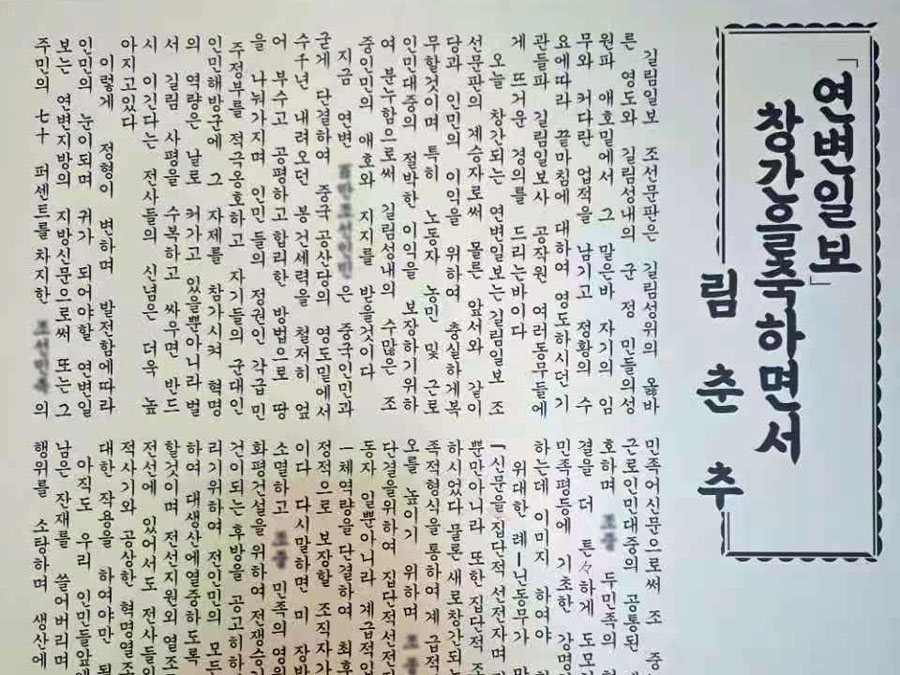 「연변일보」
창간을축하면서
림춘추
길림일보 조선문판은 길림성위의 옳바
른 영도와 길림성내의 군 정 민들의성
원과 애호밑에서 그 맡은바 자기의 임
무와 커다란 업적을 남기고 정황의 수
요에따라 끝마침에 대하여 영도하시던기
관들과 길림일보사 공작원 여러동무들에
게 뜨거운 경의를 드리는바이다
오늘 창간되는 연변일보는길림일보 조
선문판의 계승자로써 물론 앞서와 같이
당과 인민의 이익을 위하여 충실하게복
무할것이며 특히 노동자 농민 및 근로
인민대중의 절박한 이익을 보장하기위하
여 분누함으로써 길림성내의 수많은 조
중인민의 애호와 지지를 받을것이다
지금 연변 은 중국인민과
굳게 단결하여 중국 공산당의 영도밑에서
수千년 내려오던 봉건세력을 철저히 엎
어 부수고 공평하고합리한 방법으로 땅
을 나눠가지며 인민들의 정권인 각급민
주정부를 적극옹호하고 자기들의 군대인
인민해방군에 그 자제를 참가시켜 혁명
의 역량은 날로 커가고 있을뿐아니라벌
서 길림 사평을 수복하고 싸우면 반드
시 이긴다는 전사들의 신념은 더욱 높
아지고있다
이렇게 정형이 변하며 발전함에따라
인민의 눈이되며 귀가 되어야할 연변일
보는 연변지방의 지방신문으로써 또는그
주민의 七十 퍼센트를 차지한 의
민족어신문으로써 조 중
근로인민대중의 공통된
호하며 두민족의
결을 더 튼々하게 도모
민족평등에 기초한 강명
하는데 이미지 하여야
위대한 레ー닌동무가
「신문을집단적선전자며
뿐만아니라 또한집단적 조
하시었다 물론 새로창간되는
족적형식을 통하여계급적
오를 높이기 위하며
단결을위하여 집단적선전
동자 일뿐아니라 계급적인
一체역량을단결하여 최후
정적으로 보장할 조직자가
이다 다시말하면 미 장반
소멸하고 민족의 영원
화평건설을 위하여전쟁승리
건이되는후방을 공고히하
리기위하여 전인민의 모든
하여 대생산에열중하도록
할것이며 전선지원의 열조
전선에 있어서도 전사들의
적사기와 공상한 혁명열조
대한 작용을 하여야만 될
아직도 우리 인민들앞에
남은 잔재를 쓸어버리며
행위를 소탕하며 생산에